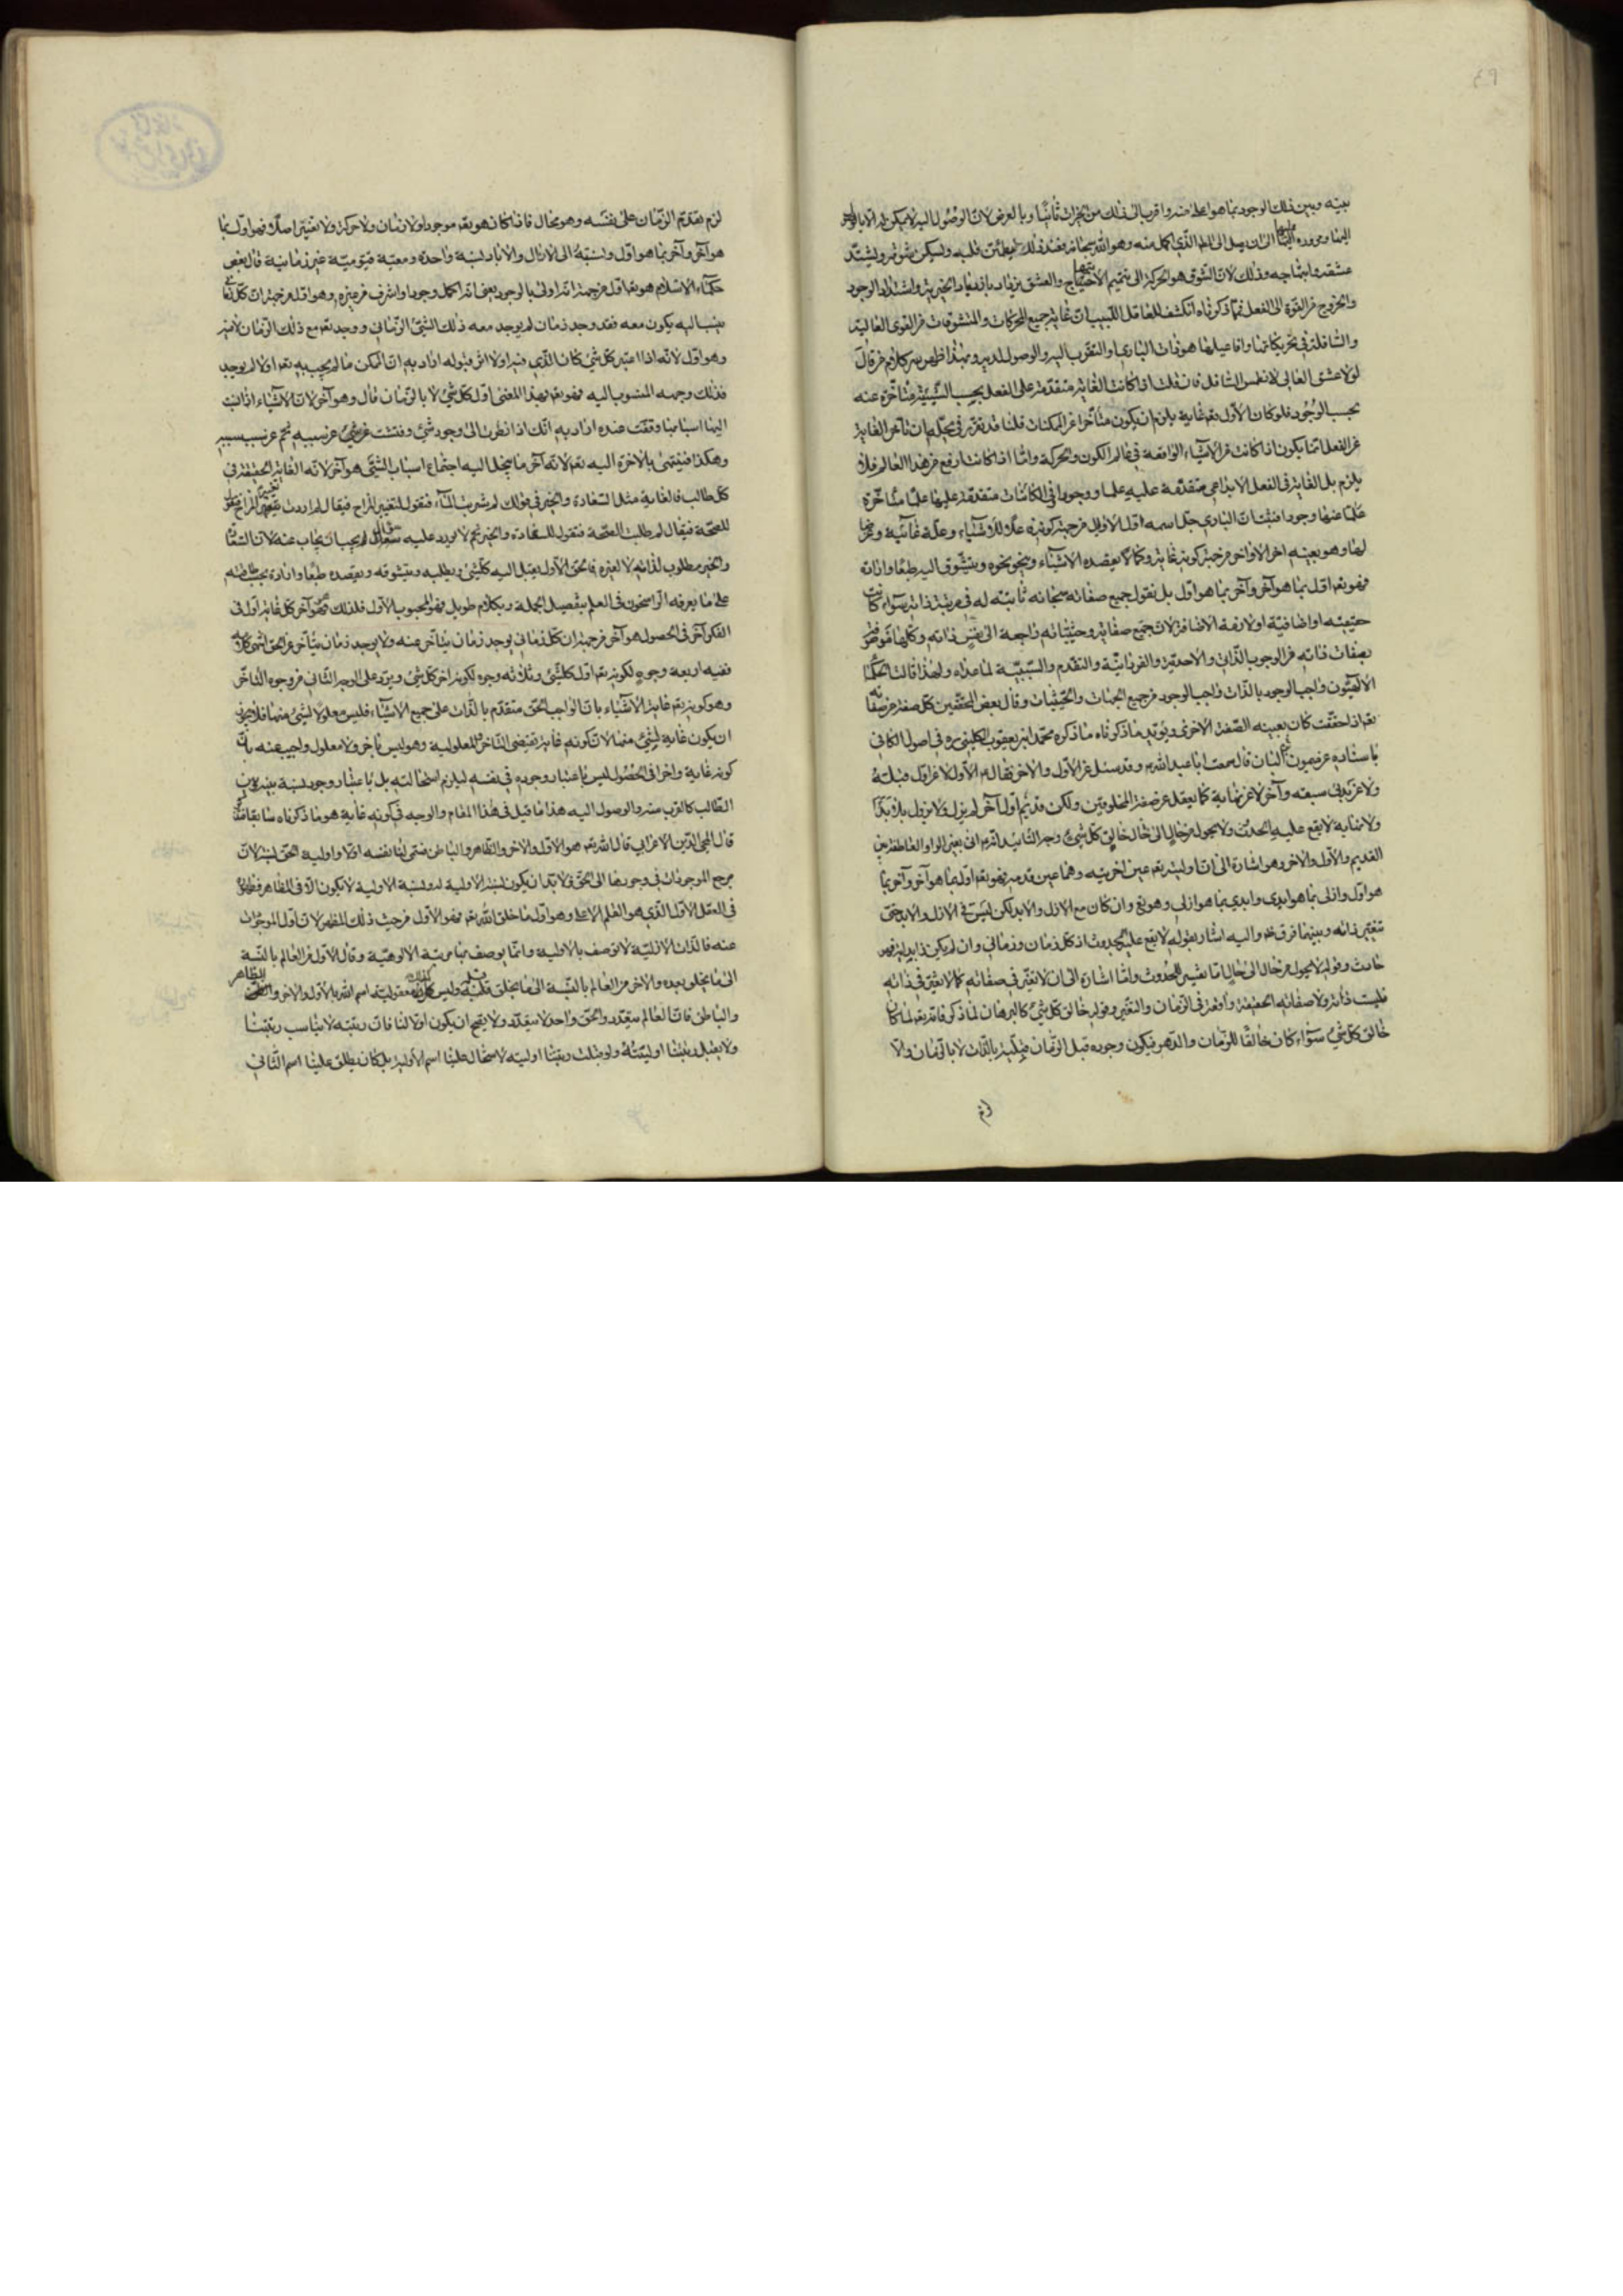 بينه وبين ذلك الوجود بما هو اعلى منه واقرب الى ذلك من الخيرات ثانيا وبالعرض لان الوصول اليه لا يمكن له الا بالمرور
اليها وموروده عليها الى ان يصل الى الذي اكمل منه وهو الله سبحانه فعند ذلك يطمئن قلبه وليسكن شوقه ويشتد
عشقه وابتهاجه وذلك لان الشوق هو الحركة الى تتميم الابتهاج والعشق يزداد بازدياد الخيرية واشتداد الوجود
والخروج من القوة الى الفعل فمما ذكرناه انكشف للعاقل اللبيب ان غاية جميع المحركات والمتشوقات من القوى العالية
والسافلة في تحريكاتها وافاعيلها هو ذات الباري والتقرب اليه والوصول لديه وبهذا ظهر سر كلام من قال
لولا عشق العالي لانطمس السافل فان قلت اذا كانت الغاية متقدمة على الفعل بحسب الشيئية متاخرة عنه
بحسب الوجود فلو كان الاول تعم غاية يلزم ان يكون متأخرا عن الممكنات قلنا قد تقرر في محله ان تأخر الغاية
عن الفعل انما يكون اذا كانت من الاشياء الواقعة في عالم الكون والحركة واما اذا كانت ارفع من هذا العالم فلا
يلزم بل الغاية في الفعل الابداعي متقدمة عليه علما ووجودا وفي الكائنات متقدمة عليها علما متأخرة
عنها وجودا فثبت ان الباري جل اسمه اول الاوايل من جهة كونه علة للاشياء وعلة غائية وغرضا
لها وهو بعينه اخر الاواخر من جهة كونه غاية وكمالا يقصده الاشياء وينحو نحوه ويتشوق اليه طبعا وارادة
فهو تعم اول بما هو آخر وآخر بما هو اول بل نقول جميع صفاته سبحانه ثابتة له في مرتبة ذاته سواء كانت
حقيقية او اضافية او لازمة الاضافة لان جميع صفاته وحيثياته راجعة الى نفس ذاته وكلها
بصفات ذاته من الوجوب الذاتي والاحدية والفردانية والتقدم والسببية لما عداه ولهذا قالت الحكماء
الالهيون واجب الوجود بالذات واجب الوجود من جميع الجهات والحيثيات وقال بعض المحققين كل صفة من صفاته
تعم اذا حققت كان بعينه الصفة الاخرى ويؤيد ما ذكرناه ما ذكره محمد ابن يعقوب الكليني ره في اصول الكافي
باسناده عن ميمون البان قال سمعت ابا عبد الله م وقد سئل عن الاول والاخر فقال م الاول لا عن اول قبله
ولا عن بدئ سبقه وآخر لا عن نهاية كما يعقل عن صفة المخلوقين ولكن قديم اول آخر لم يزل ولا يزول بلا بدء
ولا نهاية لا يقع عليه الحدوث ولا يحول من حال الى حال خالق كل شيء
القديم والاول والاخر وهو اشارة الى ان اوليته تعم عين اخريته وهما عين قدمه فهو تعم اول بما هو آخر وآخر بما
هو اول وازلي بما هو ابدي وابدي بما هو ازلي وهو تعم وان كان مع الازل والابد لكن ليس في الازل والابد حتى
تتغير ذاته وبينهما فرق واليه اشار بقوله لا يقع عليه الحدوث اذ كل زمان وزماني وان لم يكن ذا بداية فهو
حادث وقوله لا يحول من حال الى حال اما تفسير للحدوث واما اشارة الى ان لا تغير في صفاته كما لا تغير في ذاته
فليست ذاته ولا صفاته الحقيقة واقعة في الزمان والتغير وقوله خالق كل شيء كالبرهان لما ذكر فانه تعم لما كان
خالق كل شيء سواء كان خالقا للزمان والدهر فيكون وجوده قبل الزمان قبلية بالذات لا بالزمان والا
لزم
لزم تقدم الزمان على نفسه وهو محال فاذا كان هو تعم موجودا ولا زمان ولا حركة ولا تغير اصلا فهو اول بما
هو آخر وآخر بما هو اول ونسبته الى الازال والآباد نسبة واحدة ومعية قيومية غير زمانية قال بعض
حكماء الاسلام هو تعم اول من جهة انه اولى بالوجود يعني انه اكمل وجودا واشرف من غيره وهو اول من جهة ان كل زماني
ينسب اليه يكون معه فقد وجد زمان لم يوجد معه ذلك الشئ الزماني ووجد تعم مع ذلك الزمان لا فيه
وهو اول لانه اذا اعتبر كل شئ كان الذي فيه اولا اثر قبوله اراد به ان الممكن ما لم يجب به تعم اولا لم يوجد
فذلك وجهه المنسوب اليه فهو تعم بهذا المعنى اول كل شئ لا بالزمان قال وهو آخر لان الاشياء اذا نسبت
اليها اسبابها وقفت عنده اراد به انك اذا نظرت الى وجود شئ وفتشت عن شئ عن سببه ثم عن سبب سببه
وهكذا فينتهى بالاخرة اليه تعم لانه آخر ما ينحل اليه اجتماع اسباب الشئ هو آخر لانه الغاية الحقيقة في
كل طالب فالغاية مثل السعادة والخير في قولك لم شربت الماء فتقول لتغير المزاج فيقال لم اردت تغير المزاج فتقول
للصحة فيقال لم طلبت الصحة فتقول للسعادة والخير ثم لا يورد عليه سؤال يجب ان يجاب عنه لان السعادة
والخير مطلوب لذاته لا لغيره فالحق الاول يقبل اليه كل شئ ويطلبه ويتشوقه ويقصده طبعا وارادة بحسب طاقته
على ما يعرفه الراسخون في العلم بتفصيل الجملة وبكلام طويل فهو المحبوب الاول فلذلك هو آخر كل غاية اول في
الفكر آخر في الحصول هو آخر من جهة ان كل زماني يوجد زمان يتأخر عنه ولا يوجد زمان يتأخر عن الحق انتهى كلامه
ففيه اربعة وجوه لكونه تعم اول كل شئ وثلاثة وجوه لكونه آخر كل شئ ويرد على الوجه الثاني من وجوه التأخر
وهو كونه تعم غاية الاشياء بان الواجب الحق متقدم بالذات على جميع الاشياء فليس معلولا لشئ منها فلا يجوز
ان يكون غاية لشئ منها لان كونه غاية يقتضى التأخر والمعلولية وهو ليس بأخر ولا معلول واجيب عنه بان
كونه غاية واخرا في الحصول ليس باعتبار وجوده في نفسه ليلزم استحالته بل باعتبار وجود نسبة بينه وبين
الطالب كالقرب منه والوصول اليه هذا ما قيل في هذا المقام والوجه في كونه غاية هو ما ذكرناه سابقا
قال المحي الدين الاعرابي قال الله تعم هو الاول والاخر والظاهر والباطن فسمى لنا نفسه اولا واولية الحق نسبة لان
مرجع الموجودات في وجودها الى الحق فلا بد ان يكون نسبة الاولية له ونسبة الاولية لا يكون الا في المظاهر فظهوره
في العقل الاول الذي هو القلم الاعلى وهو اول ما خلق الله تعم فهو الاول من حيث ذلك المظهر لانه اول الموجودات
عنه فالذات الازلية لا توصف بالاولية وانما يوصف بها مرتبة الالوهية وقال الاول من العالم بالنسبة
الى ما يخلق بعده والآخر من العالم بالنسبة الى ما يخلق قبله وليس كذلك معقولية اسم الله بالاول والاخر والظاهر
والباطن فان العالم متعدد والحق واحد لا يتعدد ولا يصح ان يكون اولا لنا فان رتبته لا يناسب رتبتنا
ولا يقبل رتبتنا اوليته ولو قبلت رتبتنا اوليته لاستحال علينا اسم الاولية بل كان يطلق علينا اسم الثاني